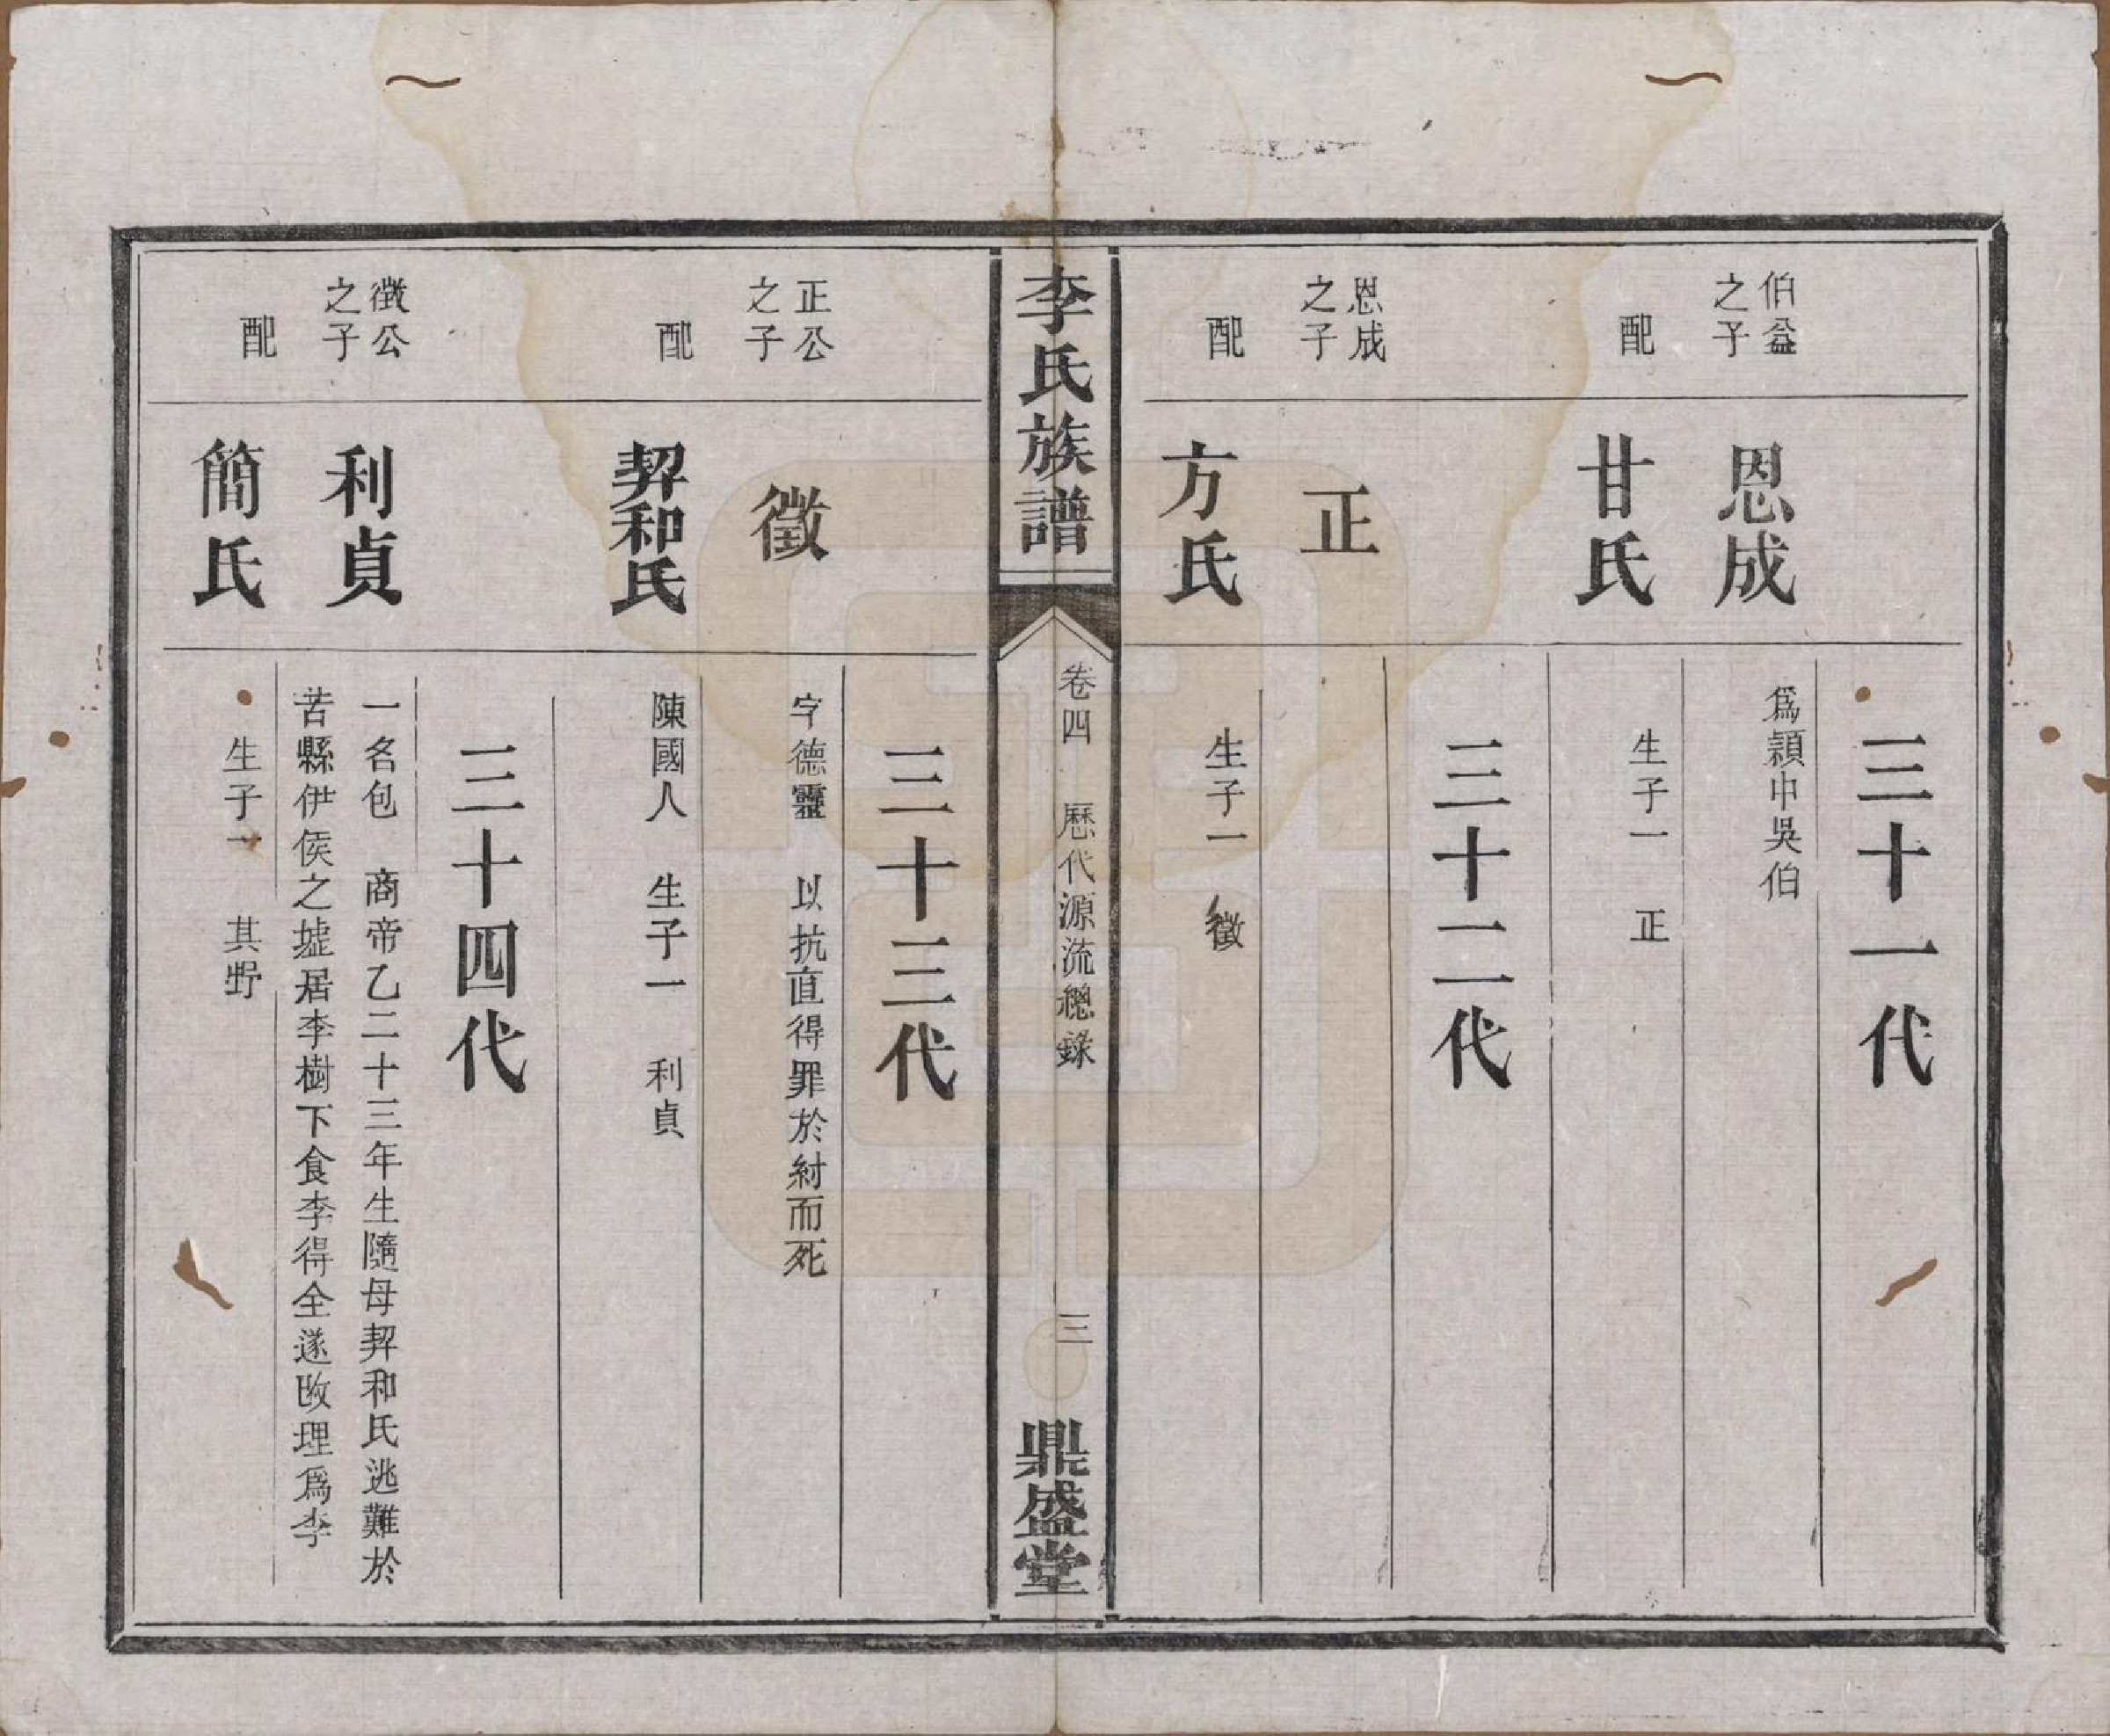 三十一代
伯益
之子
恩成
爲頴中吳伯
配
甘氏
生子一 正
三十二代
恩成
之子
正
配
方氏
生子一 徵
李氏族譜
卷四 歷代源流總錄
三
鼎盛堂
三十三代
正公
之子
徵
字德靈 以抗直得罪於紂而死
配
契和氏
陳國人 生子一 利貞
三十四代
徵公
之子
利貞
一名包 商帝乙二十三年生隨母契和氏逃難於
苦縣伊侯之墟居李樹下食李得全遂改理爲李
配
簡氏
生子一 其野